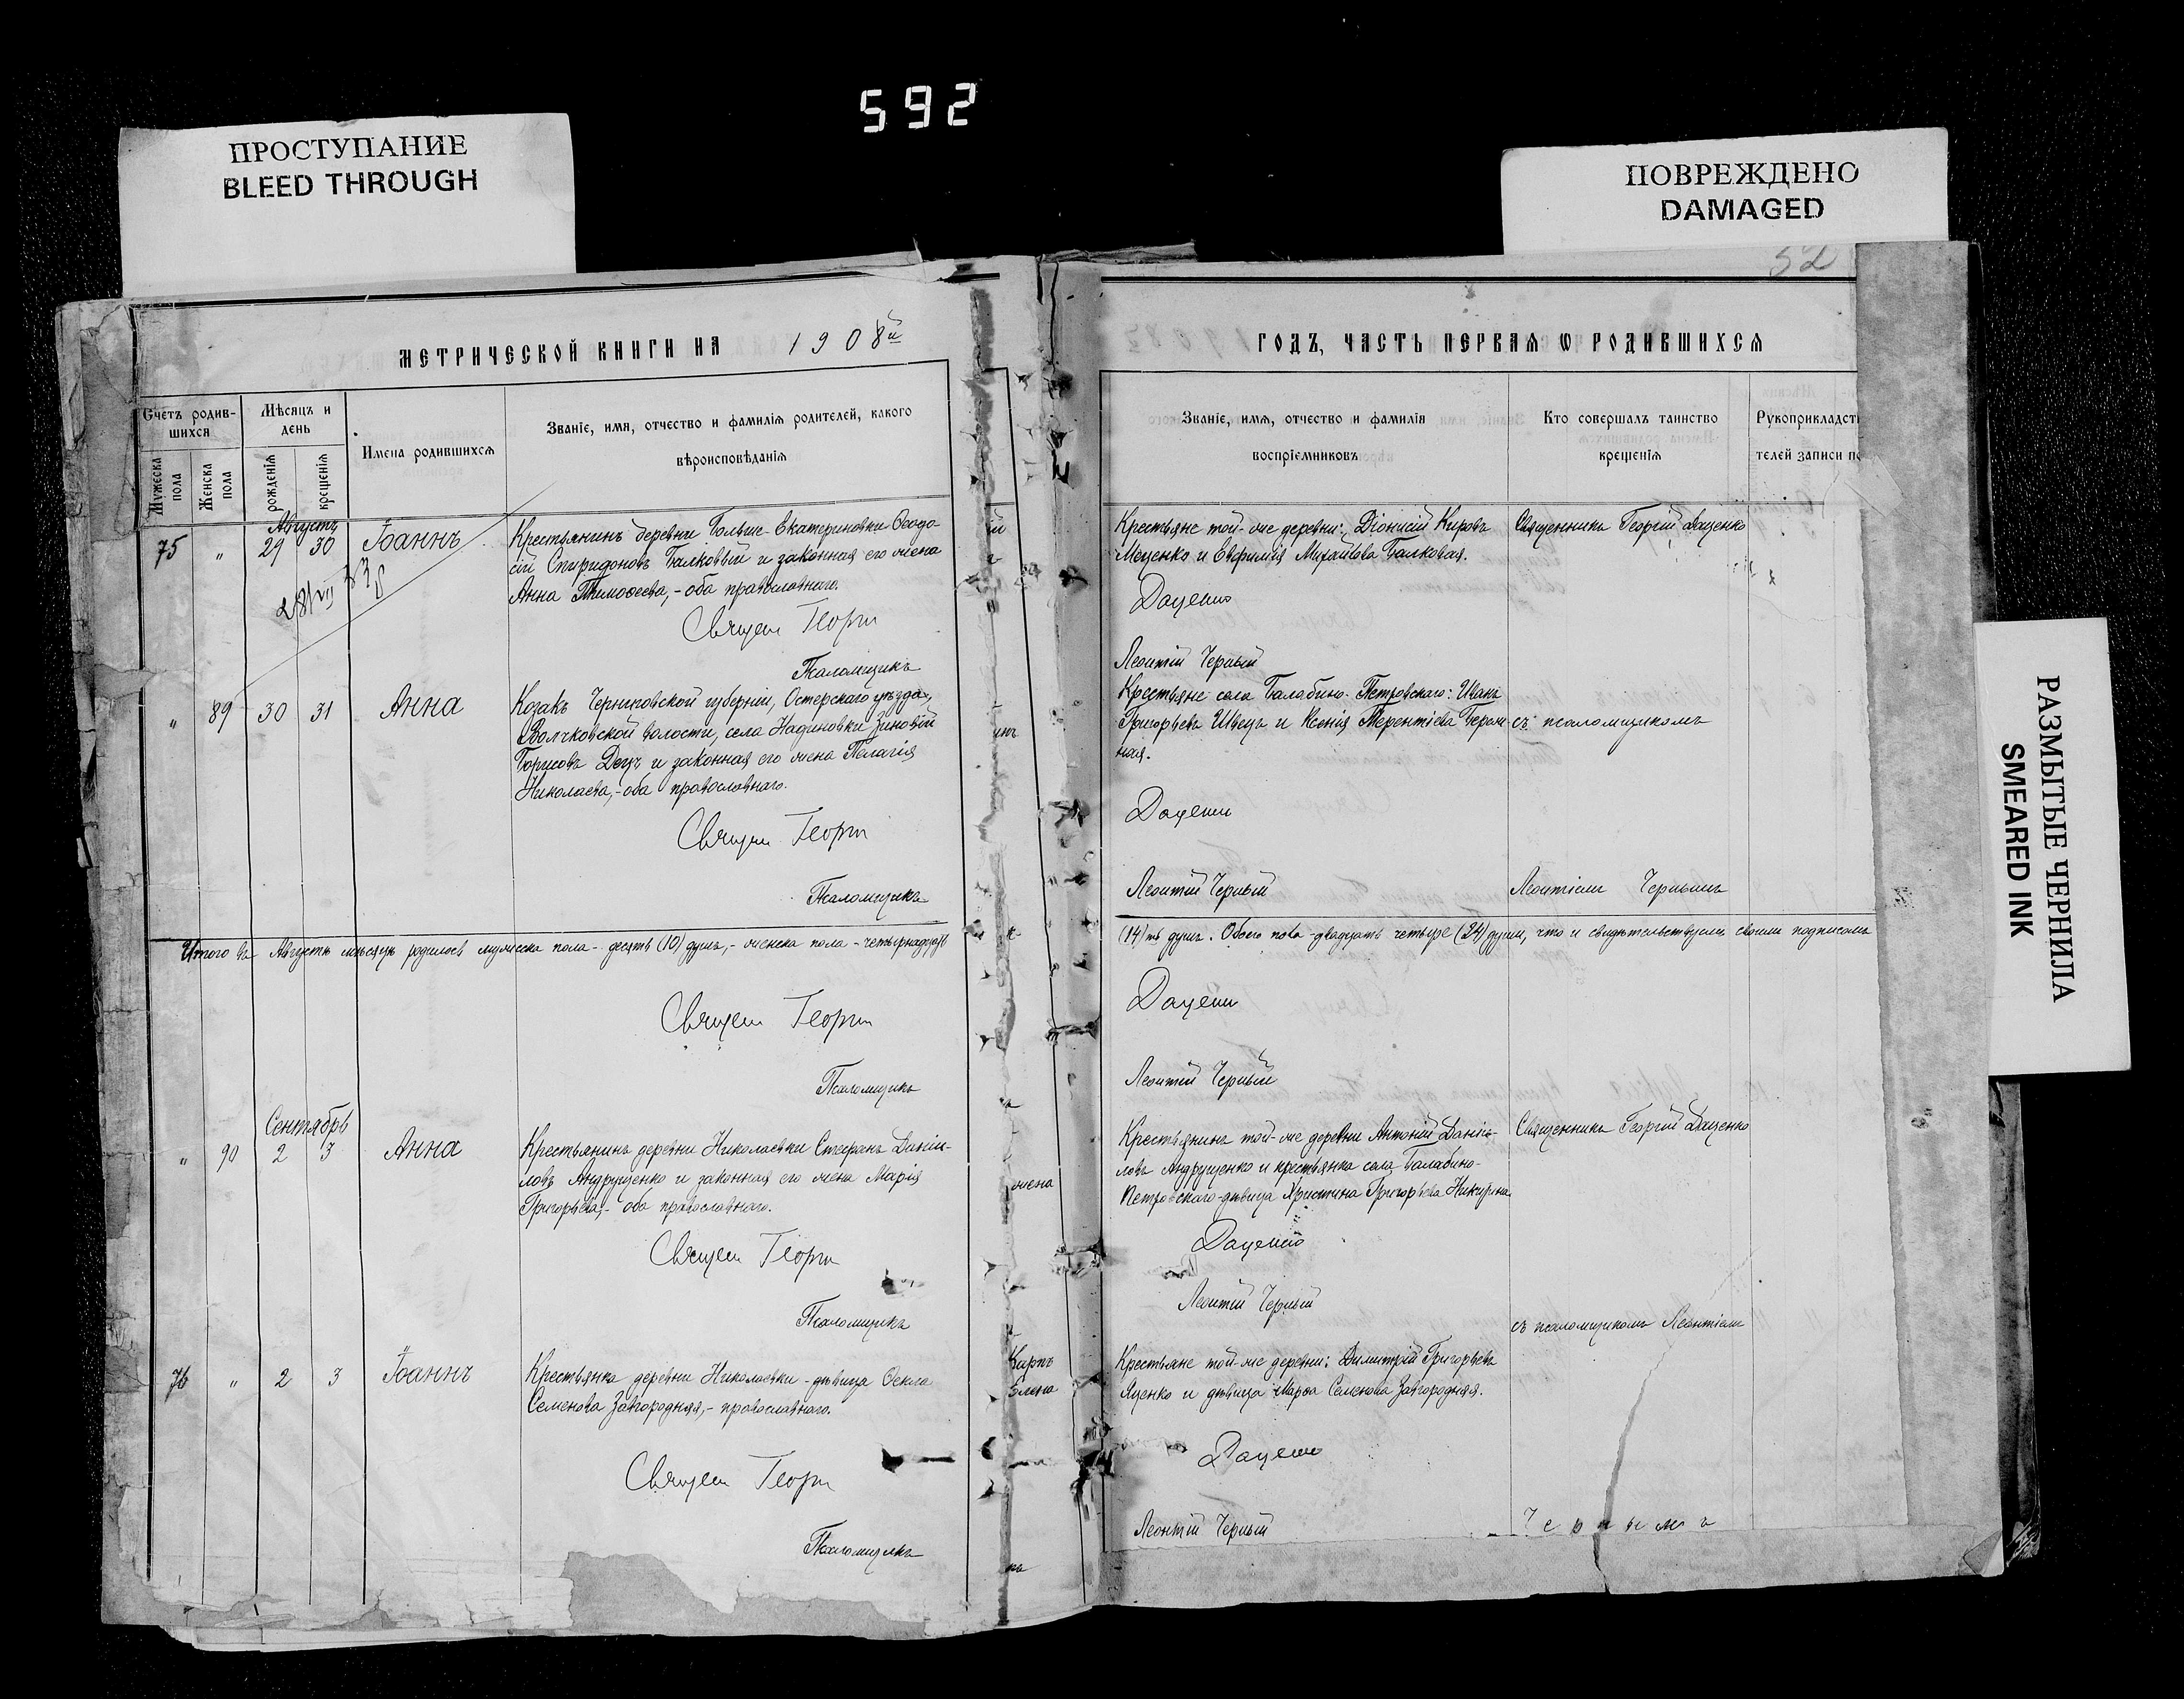 592
ПРОСТУПАНИЕ
BLEED THROUGH
ПОВРЕЖДЕНО
DAMAGED
РАЗМЫТЫЕ ЧЕРНИЛА
SMEARED INK
52
МЕТРИЧЕСКОЙ КНИГИ НА 1908й
Счетъ родив-
шихся
Мужеска
пола
Женска
пола
Мѣсяцъ и
день
рожденія
крещенія
Имена родившихся
Званіе, имя, отчество и фамилія родителей, какого
вѣроисповѣданія
Августъ
75 " 29 30 Іоаннъ
Крестьянинъ деревни Больше-Екатериновки Ѳеодо-
сій Спиридоновъ Балковый и законная его жена
Анна Тимоѳеева,- оба православнаго.
Священ Георги
Псаломщикъ
" 89 30 31 Анна
Козакъ Черниговской губерніи, Остерскаго уѣзда,
волости, села Надиновки Зиновій
Борисовъ и законная его жена Пелагія
Николаева,- оба православнаго.
Священ Георги
Псаломщикъ
Итого въ Августѣ мѣсяцѣ родилось мужеска пола - десять (10) душъ,- женска пола - четырнадцать
Священ Георги
Псаломщикъ
Сентябрь
" 90 2 3 Анна
Крестьянинъ деревни Николаевки Стефанъ Даніи-
ловъ Андрущенко и законная его жена Марія
Григорьева,- оба православнаго.
Священ Георги
Псаломщикъ
76 " 2 3 Іоаннъ
Крестьянка деревни Николаевки - дѣвица Ѳекла
Семенова Завгородняя,- православнаго.
Священ Георги
Псаломщикъ
жена
Карпъ
ГОДЪ, ЧАСТЬ ПЕРВАЯ Ѡ РОДИВШИХСЯ
Званіе, имя, отчество и фамилія
воспріемниковъ
Кто совершалъ таинство
крещенія
Рукоприкладст
телей записи по
Крестьяне той-же деревни: Діонисій Кировъ
Моценко и Евфимія Михайлова Балковая.
Священникъ Георгій Даценко
Даценко
Леонтій Черный
Крестьяне села Балабино-Петровскаго: Иванъ
Григорьевъ Швецъ и Ксенія Терентіева
ная.
съ псаломщикомъ
Даценко
Леонтій Черный
Леонтіемъ Чернымъ
(14)ть душъ. Обоего пола - двадцать четыре (24) души, что и свидѣтельствуемъ своимъ подписомъ
Даценко
Леонтій Черный
Крестьянинъ той-же деревни Антоній Даніи-
ловъ Андрущенко и крестьянка села Балабино-
Петровскаго - дѣвица Христина Григорьева
Священникъ Георгій Даценко
Даценко
Леонтій Черный
съ псаломщикомъ Леонтіемъ
Крестьяне той-же деревни: Димитрій Григорьевъ
Яценко и дѣвица Марѳа Семенова Завгородняя.
Даценко
Леонтій Черный
Чернымъ